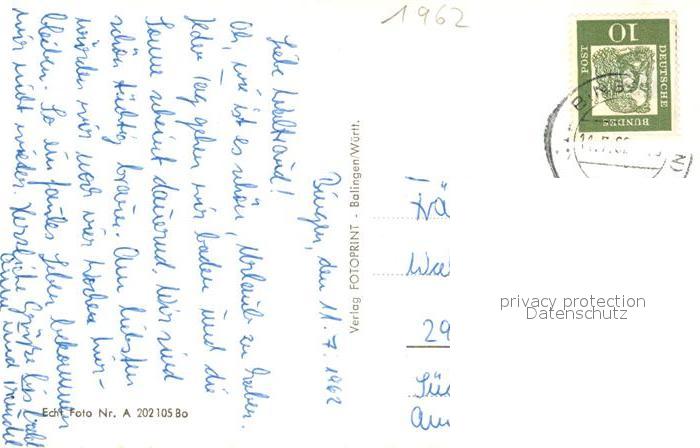 1962
10
DEUTSCHE
BUNDES
POST
BINGEN
11.7.62
Bingen, den 11.7.1962
Liebe Waltraud!
Oh, wie ist es schön, Urlaub zu haben.
Jeden Tag gehen wir baden und die
Sonne scheint dauernd. Wir sind
schön tüchtig braun. Am liebsten
würden wir noch vier Wochen hier-
bleiben. So ein faules Leben bekommen
wir nicht wieder. Herzliche Grüße bis bald
und
Verlag FOTOPRINT - Balingen/Württ.
Echt Foto Nr. A 202 105 Bo
Frä
Wal
29
privacy protection
Datenschutz